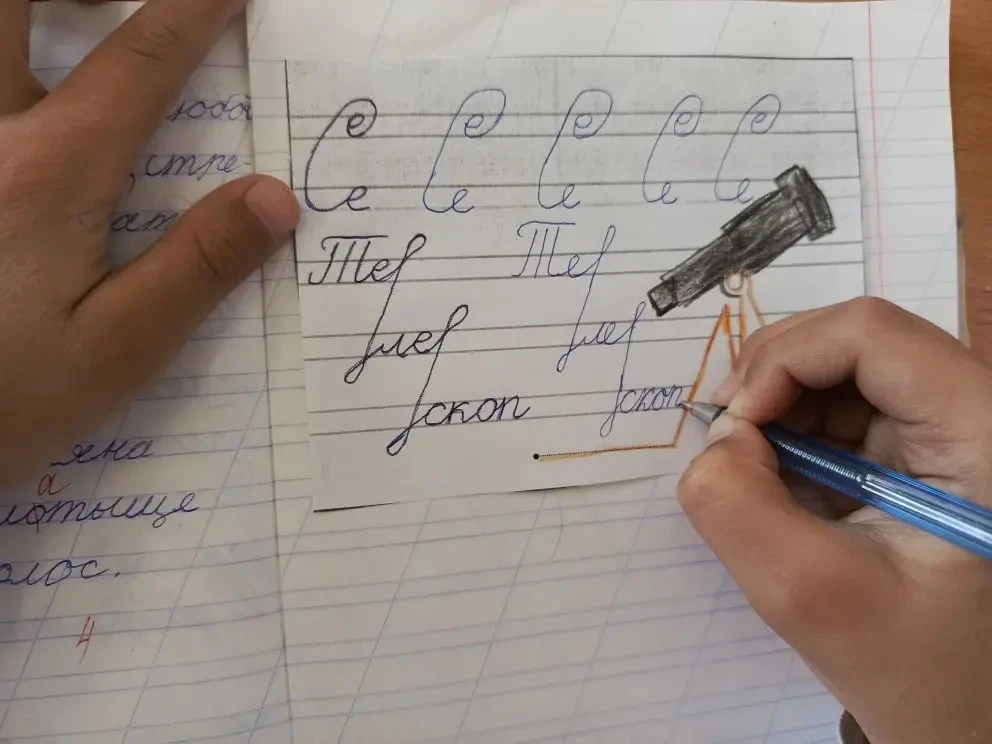 , стре-
яна
олос.
4
Се Се Се Се Се
Те Те
ле ле
скоп скоп